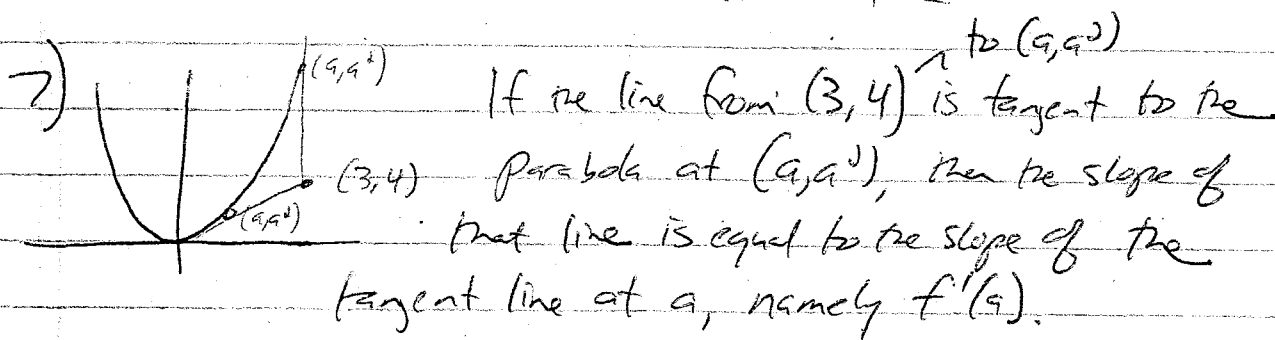 to (a,a²)
7) (a,a²) If the line from (3,4) ^ is tangent to the
(3,4) parabola at (a,a²), then the slope of
(a,a²) that line is equal to the slope of the
tangent line at a, namely f'(a).